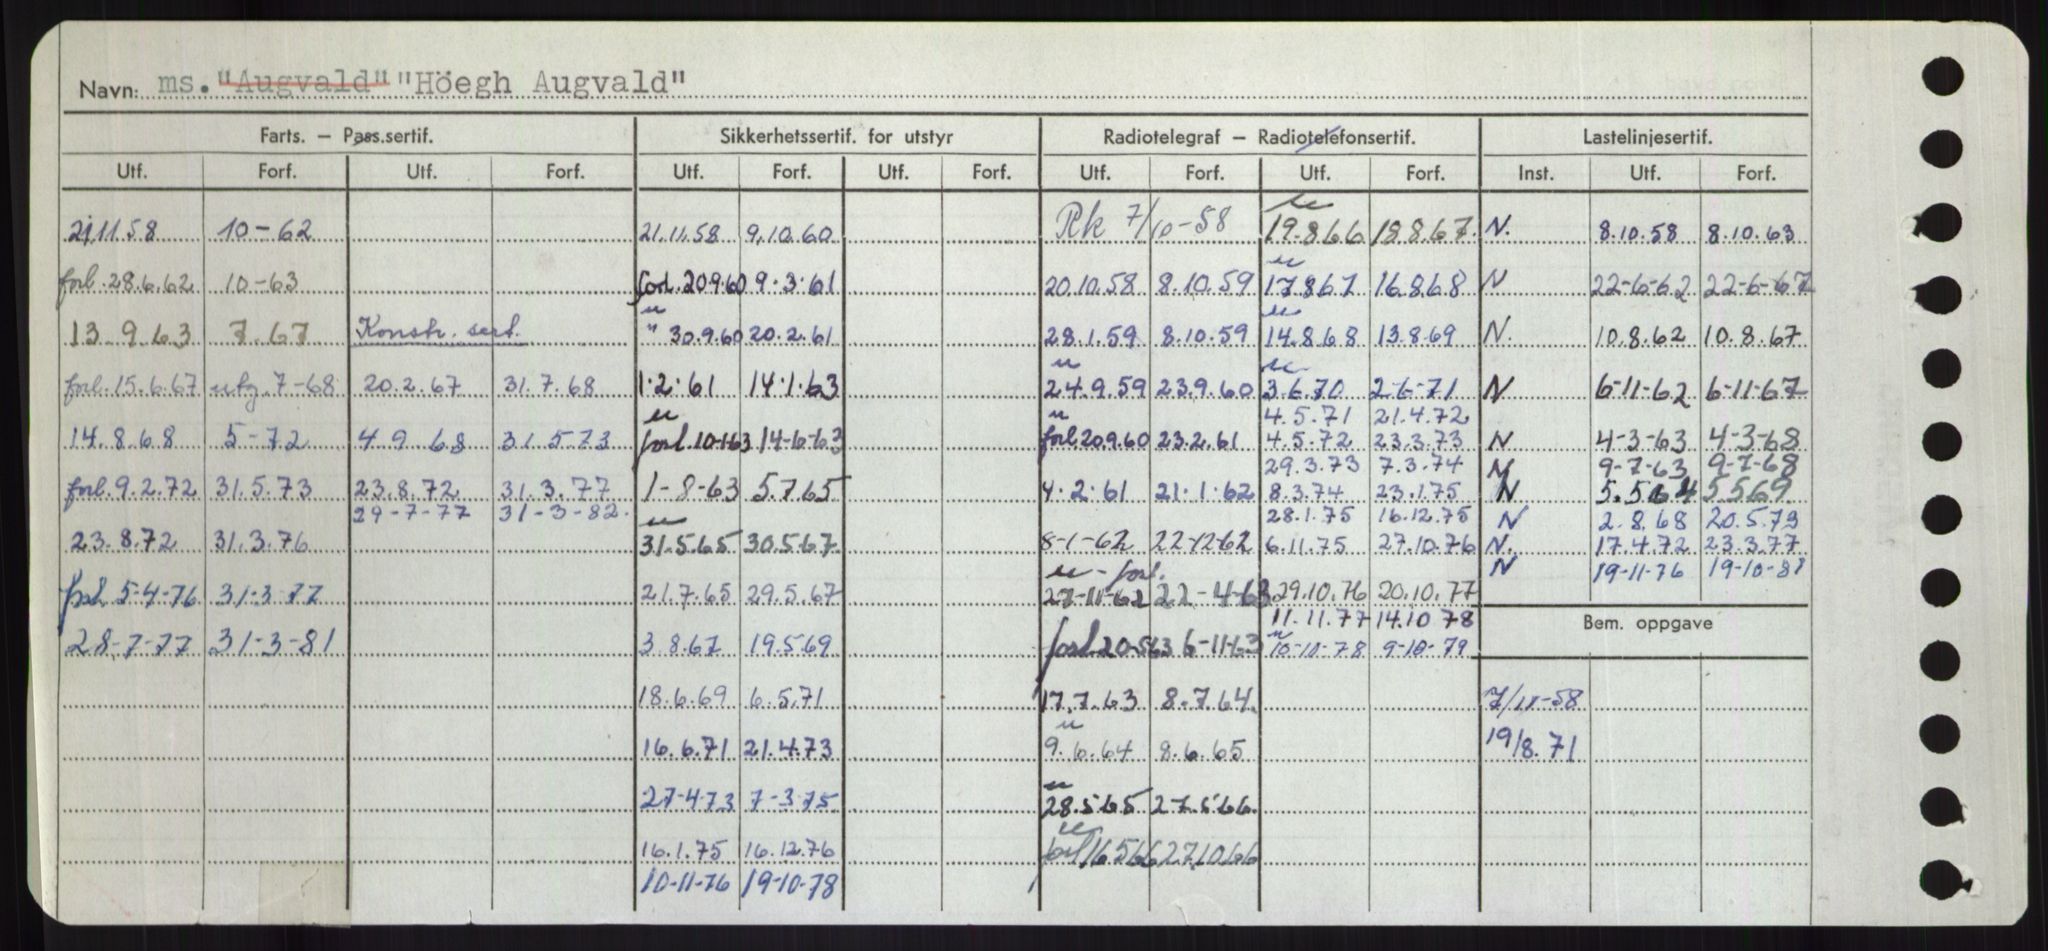 Navn: ms. "Augvald" "Höegh Augvald"
Farts. – Pass.sertif. Sikkerhetssertif. for utstyr Radiotelegraf – Radiotelefonsertif. Lastelinjesertif.
Utf. Forf. Utf. Forf. Utf. Forf. Utf. Forf. Utf. Forf. Utf. Forf. Inst. Utf. Forf.
21.11.58 10-62 21.11.58 9.10.60 Rk 7/10-58 19.8.66 18.8.67. N. 8.10.58 8.10.63
forl. 28.6.62 10-63 forl. 20.9.60 9.3.61 20.10.58 8.10.59 17.8.67 16.8.68 N 22-6-62 22-6-67
13.9.63 7.67 Konstr. sert. " 30.9.60 20.2.61 28.1.59 8.10.59 14.8.68 13.8.69 N. 10.8.62 10.8.67
forl. 15.6.67 utg. 7-68 20.2.67 31.7.68 1.2.61 14.1.63 24.9.59 23.9.60 3.6.70 2-6-71 N 6-11-62 6-11-67
4.5.71 21.4.72
14.8.68 5-72 4.9.68 31.5.73 forl. 10-1-63 14-6-63 forl 20.9.60 23.2.61 4.5.72 23.3.73 N 4-3-63 4-3-68
29.3.73 7.3.74 N 9-7-63 9-7-68
forl. 9.2.72 31.5.73 23.8.72 31.3.77 1-8-63 5.7.65 4.2.61 21.1.62 8.3.74 23.1.75 N 5.5.64 5.5.69
29-7-77 31-3-82. 28.1.75 16.12.75 N 2.8.68 20.5.73
23.8.72 31.3.76 31.5.65 30.5.67 8-1-62 22-12-62 6.11.75 27.10.76 N. 17.4.72 23.3.77
forl. N 19-11-76 19-10-81
forl 5-4-76 31-3-77 21.7.65 29.5.67 27-11-62 22-4-63 29.10.76 20.10.77
11.11.77 14.10.78
Bem. oppgave
28-7-77 31-3-81 3.8.67 19.5.69 forl. 20-5-63 6-11-63 10-10-78 9-10-79
18.6.69 6.5.71 17.7.63 8.7.64. 7/11-58
16.6.71 21.4.73 9.6.64 8.6.65 19/8.71
27-4-73 7-3-75 28.5.65 27.5.66.
16.1.75 16.12.76 forl 16.5.66 27.10.66
10-11-76 19-10-78